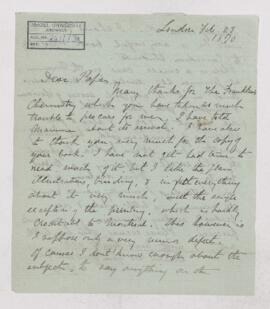 London Feb. 27
1890
McGILL UNIVERSITY
ARCHIVES
ACC. NO.
REF.
Dear Papa,
Many thanks for the Frankland
Chemistry which you have taken so much
trouble to procure for me. I have told
Mamma about its arrival. I am also
to thank you very much for the copy of
your book. I have not yet had time to
read much of it but I like the plan
illustrations, binding, & in fact everything
about it very much, with the single
exception of the printing, which is hardly
creditable to Montreal. This however is
I suppose only a very minor defect.
Of course I don't know enough about the
subject, to say anything on the